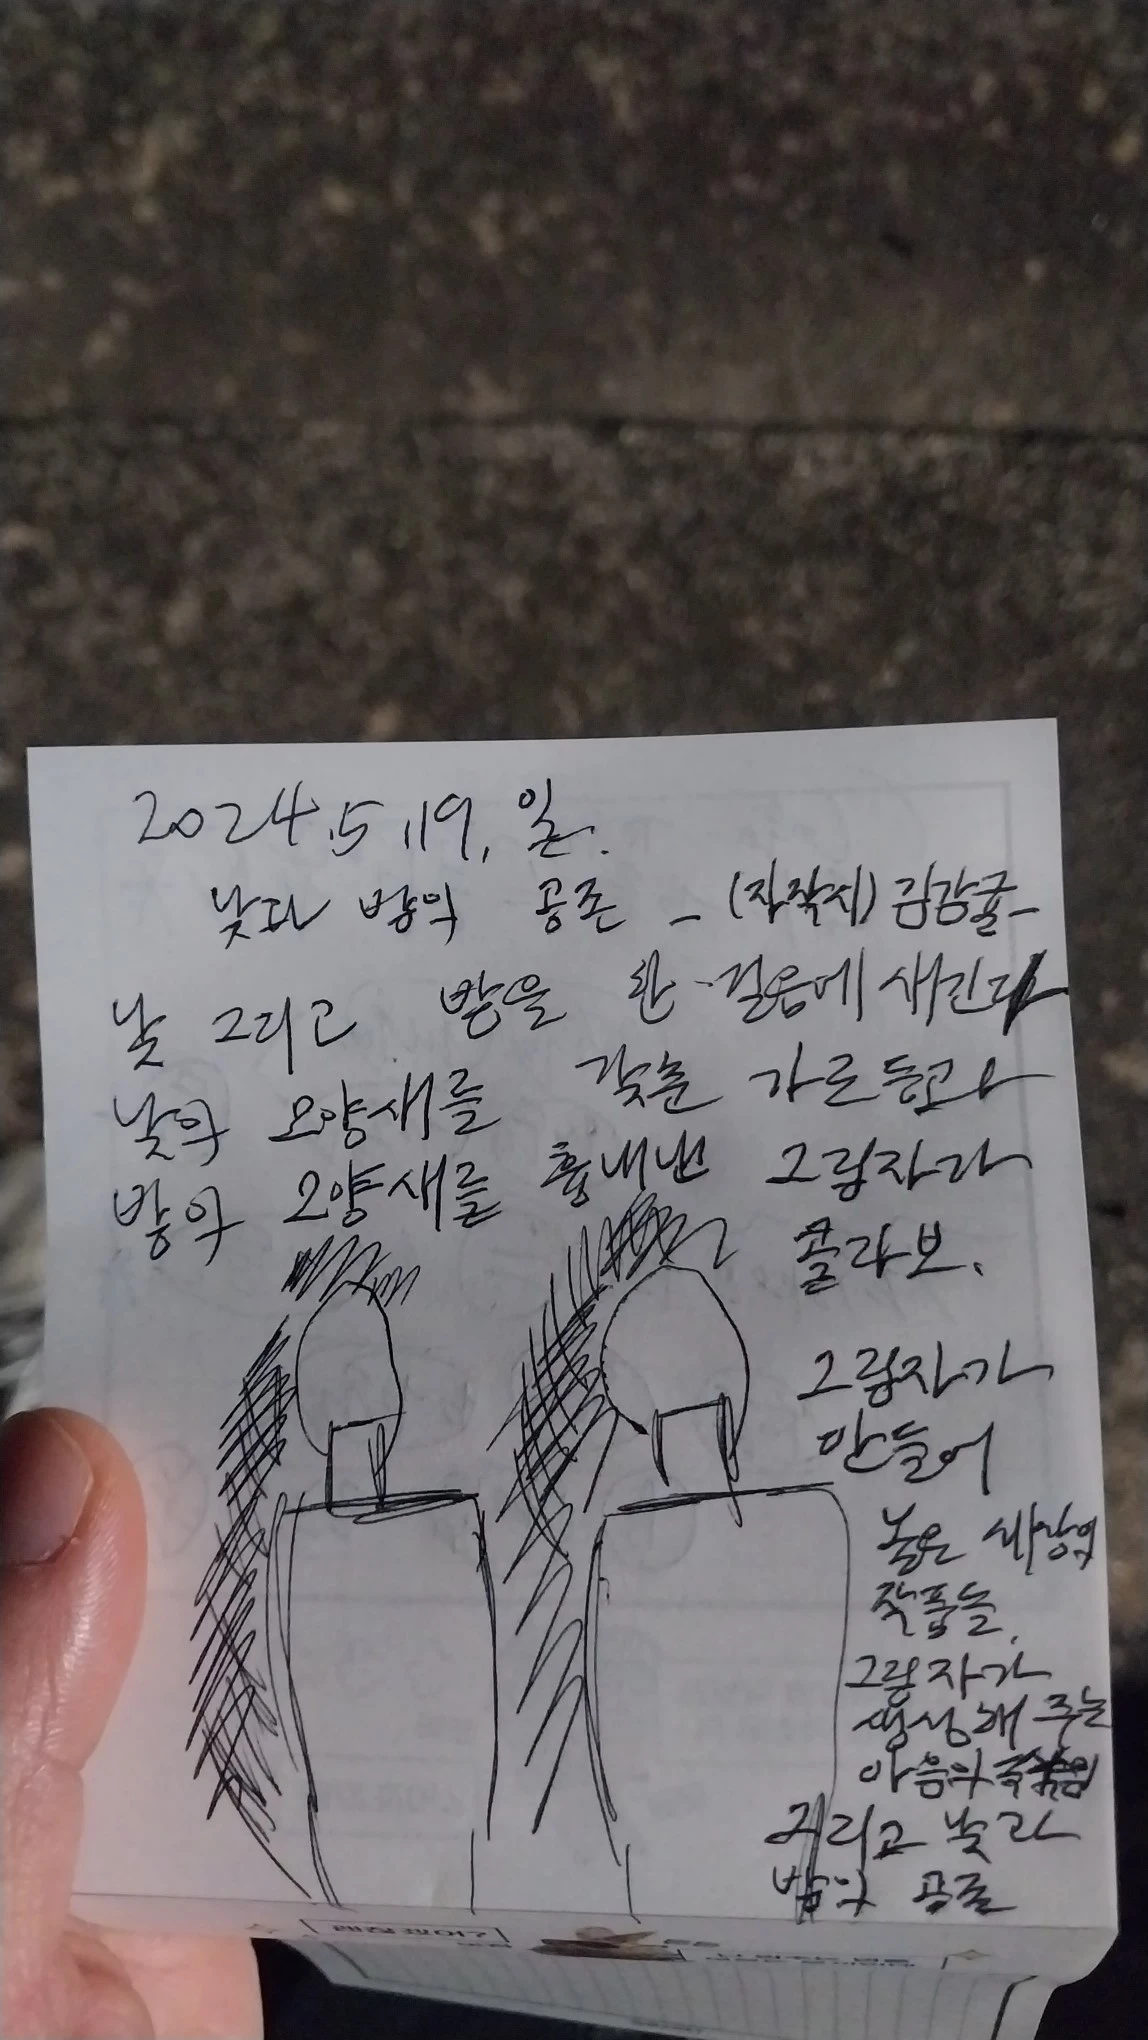 2024.5.19. 일.
낮과 밤의 공존 - (자작시) 김감귤-
낮 그리고 밤을 한 걸음에 새긴다
낮의 모양새를 갖춘 가로등과
밤의 모양새를 흉내낸 그림자와
콜라보.
그림자가
만들어
놓은 세상의
작품들.
그림자가
생성해 주는
마음의
그리고 낮과
밤의 공존